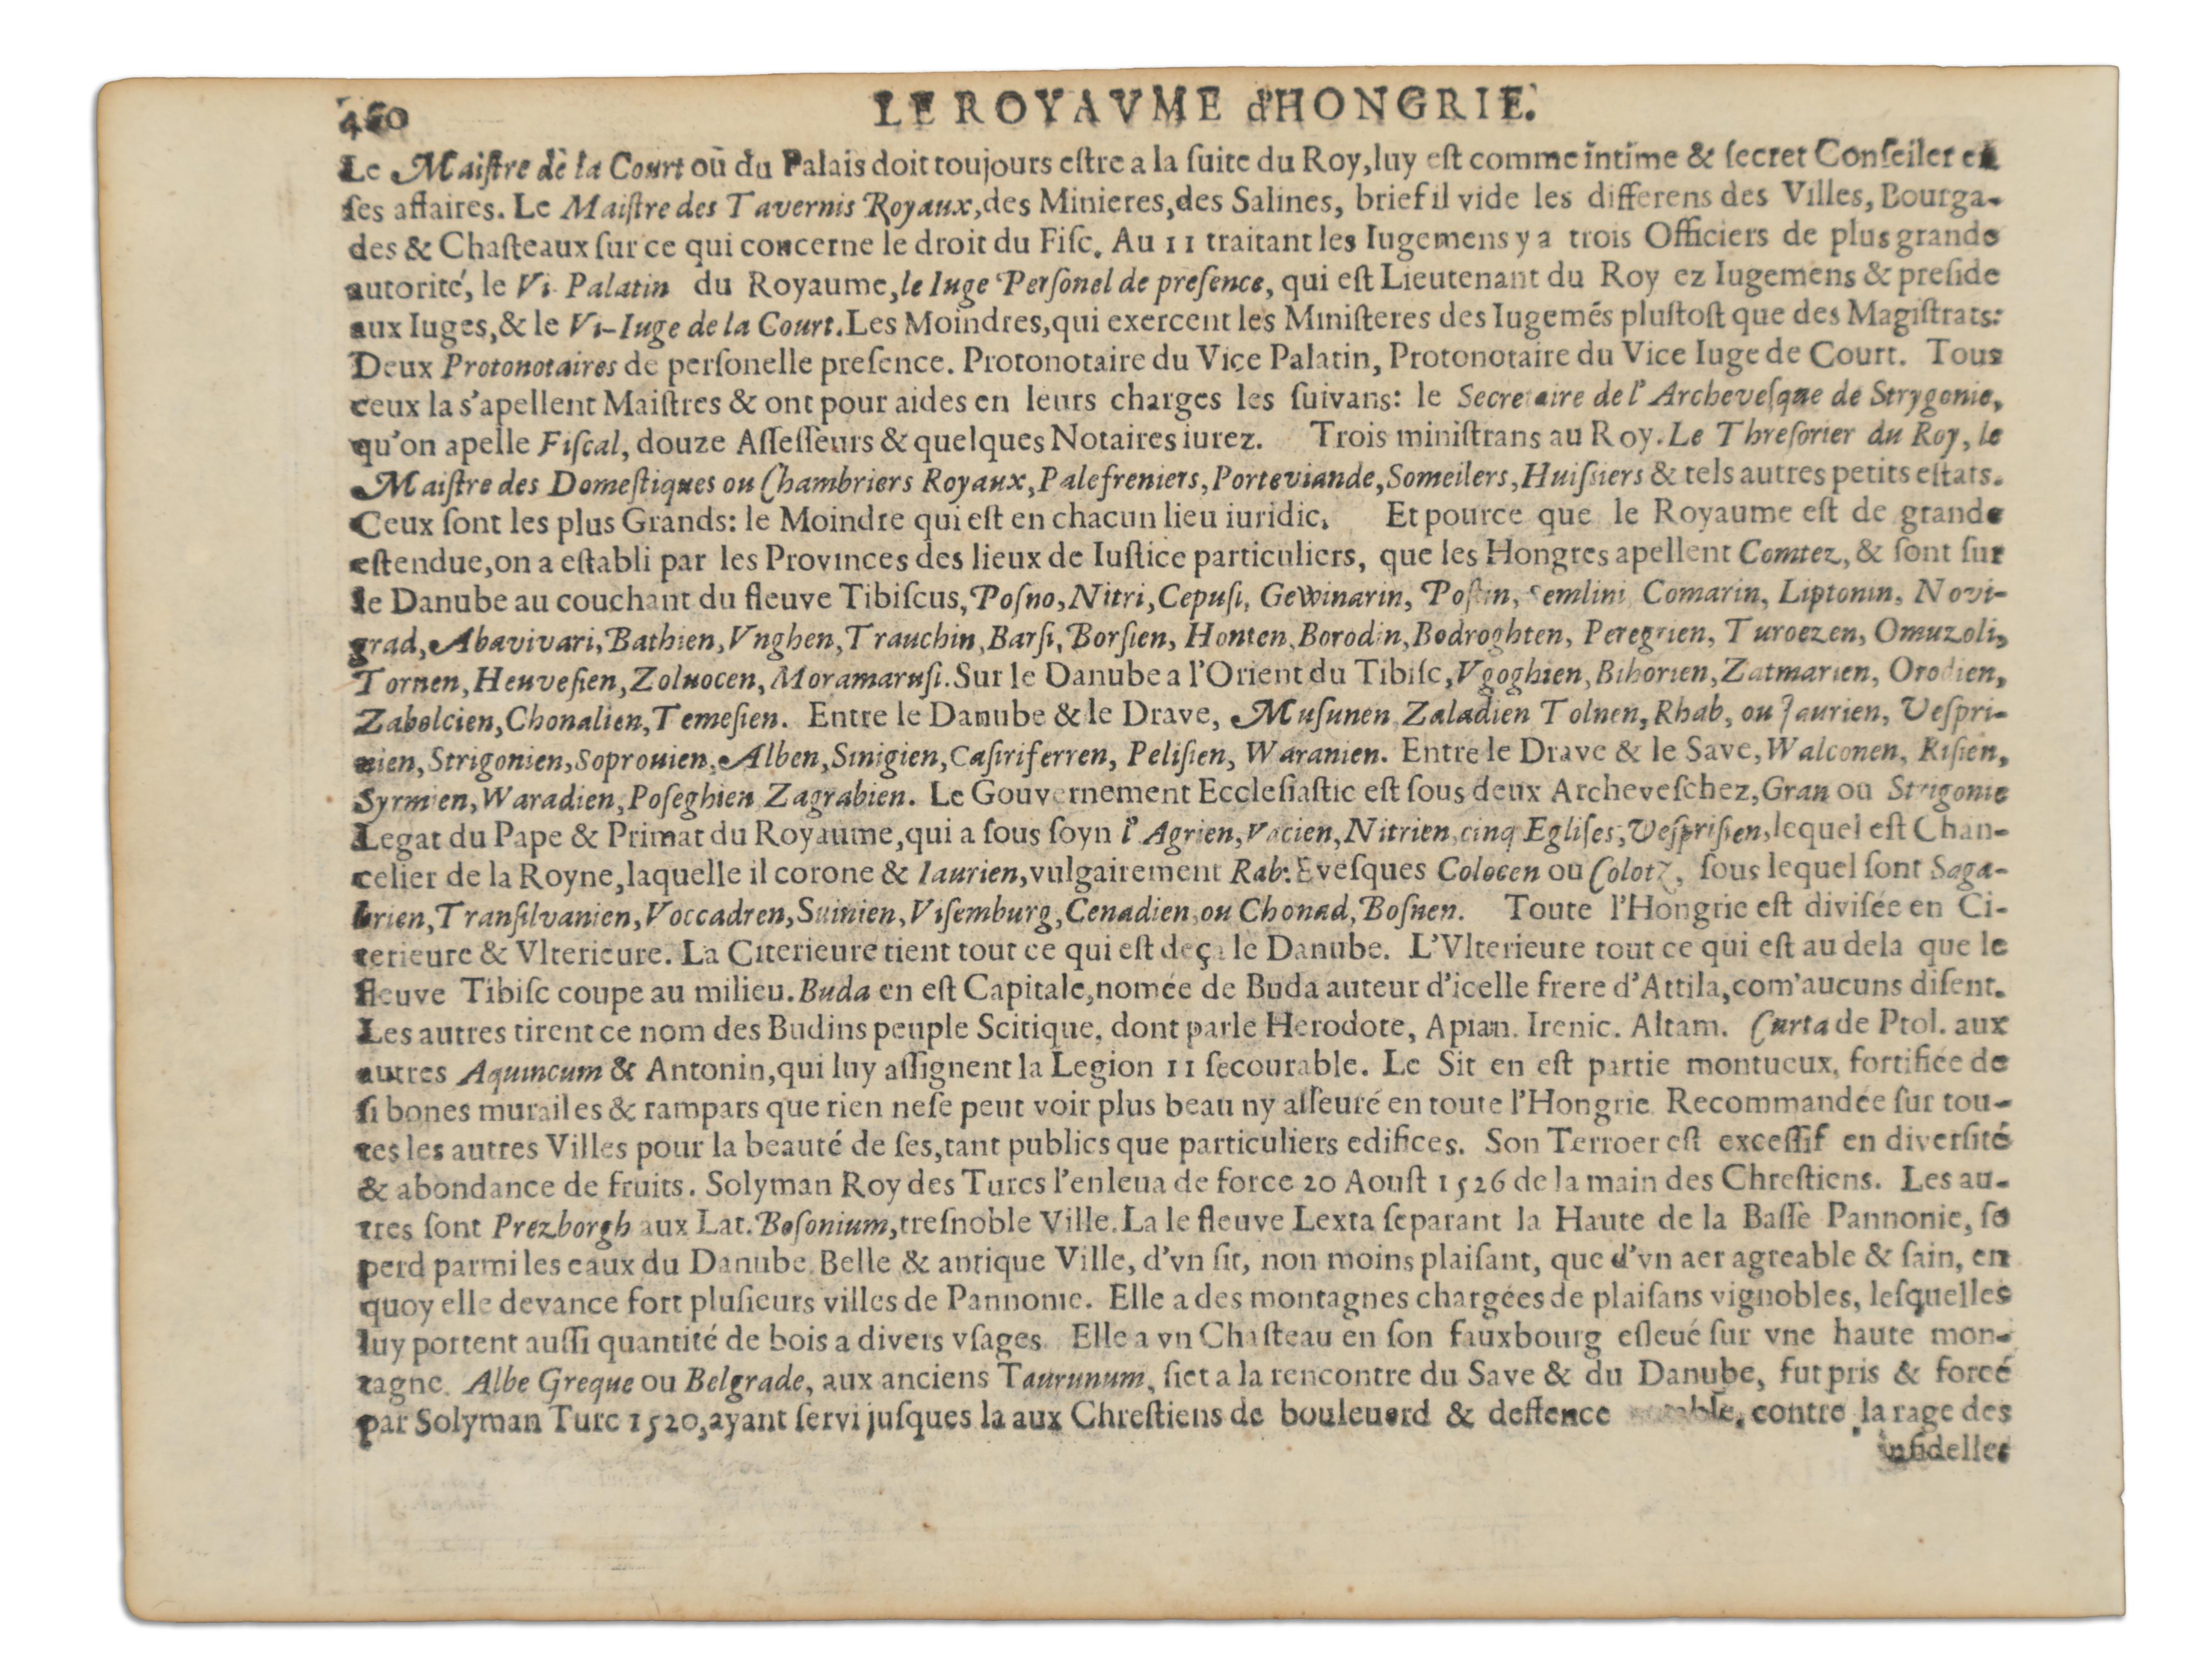 460
LE ROYAVME d'HONGRIE.
Le Maiſtre de la Court ou du Palais doit toujours eſtre a la ſuite du Roy, luy eſt comme intime & ſecret Conſeiler en
ſes affaires. Le Maiſtre des Tavernis Royaux, des Minieres, des Salines, brief il vide les differens des Villes, Bourga-
des & Chaſteaux ſur ce qui concerne le droit du Fiſc. Au 11 traitant les Iugemens y a trois Officiers de plus grande
autorité, le Vi Palatin du Royaume, le Iuge Perſonel de preſence, qui eſt Lieutenant du Roy ez Iugemens & preſide
aux Iuges, & le Vi-Iuge de la Court. Les Moindres, qui exercent les Miniſteres des Iugemẽs pluſtoſt que des Magiſtrats:
Deux Protonotaires de perſonelle preſence. Protonotaire du Vice Palatin, Protonotaire du Vice Iuge de Court. Tous
ceux la s'apellent Maiſtres & ont pour aides en leurs charges les ſuivans: le Secretaire de l' Archeveſque de Strygonie,
qu'on apelle Fiſcal, douze Aſſeſſeurs & quelques Notaires iurez. Trois miniſtrans au Roy. Le Threſorier du Roy, le
Maiſtre des Domeſtiques ou Chambriers Royaux, Palefreniers, Porteviande, Someilers, Huiſsiers & tels autres petits eſtats.
Ceux ſont les plus Grands: le Moindre qui eſt en chacun lieu iuridic. Et pource que le Royaume eſt de grande
eſtendue, on a eſtabli par les Provinces des lieux de Iuſtice particuliers, que les Hongres apellent Comtez, & ſont ſur
le Danube au couchant du fleuve Tibiſcus, Poſno, Nitri, Cepuſi, Gewinarin, Poſtin, Semlini Comarin, Liptonin, Novi-
grad, Abavivari, Bathien, Vnghen, Trauchin, Barſi, Borſien, Honten, Borodin, Bodroghten, Peregrien, Turoezen, Omuzoli,
Tornen, Heuveſien, Zoluocen, Moramaruſi. Sur le Danube a l'Orient du Tibiſc, Vgoghien, Bihorien, Zatmarien, Orodien,
Zabolcien, Chonalien, Temeſien. Entre le Danube & le Drave, Muſunen Zaladien Tolnen, Rhab, ou Jaurien, Veſpri-
nien, Strigonien, Soprouien, Alben, Sinigien, Caſiriferren, Peliſien, Waranien. Entre le Drave & le Save, Walconen, Riſien,
Syrmien, Waradien, Poſeghien Zagrabien. Le Gouvernement Eccleſiaſtic eſt ſous deux Archeveſchez, Gran ou Strigonie
Legat du Pape & Primat du Royaume, qui a ſous ſoyn l' Agrien, Vacien, Nitrien, cinq Egliſes, Veſpriſien, lequel eſt Chan-
celier de la Royne, laquelle il corone & Iaurien, vulgairement Rab: Eveſques Colocen ou Colotz, ſous lequel ſont Saga-
brien, Tranſilvanien, Voccadren, Suinien, Viſemburg, Cenadien, ou Chonad, Boſnen. Toute l'Hongrie eſt diviſée en Ci-
terieure & Vlterieure. La Citerieure tient tout ce qui eſt deça le Danube. L'Vlterieure tout ce qui eſt au dela que le
fleuve Tibiſc coupe au milieu. Buda en eſt Capitale, nomée de Buda auteur d'icelle frere d'Attila, com'aucuns diſent.
Les autres tirent ce nom des Budins peuple Scitique, dont parle Herodote, Apian. Irenic. Altam. Curta de Ptol. aux
autres Aquincum & Antonin, qui luy aſſignent la Legion 11 ſecourable. Le Sit en eſt partie montueux, fortifiée de
ſi bones murailes & rampars que rien neſe peut voir plus beau ny aſſeuré en toute l'Hongrie. Recommandée ſur tou-
tes les autres Villes pour la beauté de ſes, tant publics que particuliers edifices. Son Terroer eſt exceſſif en diverſité
& abondance de fruits. Solyman Roy des Turcs l'enleua de force 20 Aouſt 1526 de la main des Chreſtiens. Les au-
tres ſont Prezborgh aux Lat. Boſonium, treſnoble Ville. La le fleuve Lexta ſeparant la Haute de la Baſſe Pannonie, ſe
perd parmi les eaux du Danube. Belle & antique Ville, d'vn ſit, non moins plaiſant, que d'vn aer agreable & ſain, en
quoy elle devance fort pluſieurs villes de Pannonie. Elle a des montagnes chargées de plaiſans vignobles, leſquelles
luy portent auſſi quantité de bois a divers vſages. Elle a vn Chaſteau en ſon fauxbourg eſleué ſur vne haute mon-
tagne. Albe Greque ou Belgrade, aux anciens Taurunum, ſiet a la rencontre du Save & du Danube, fut pris & forcé
par Solyman Turc 1520, ayant ſervi juſques la aux Chreſtiens de bouleuerd & deffence contre la rage des
infidelles